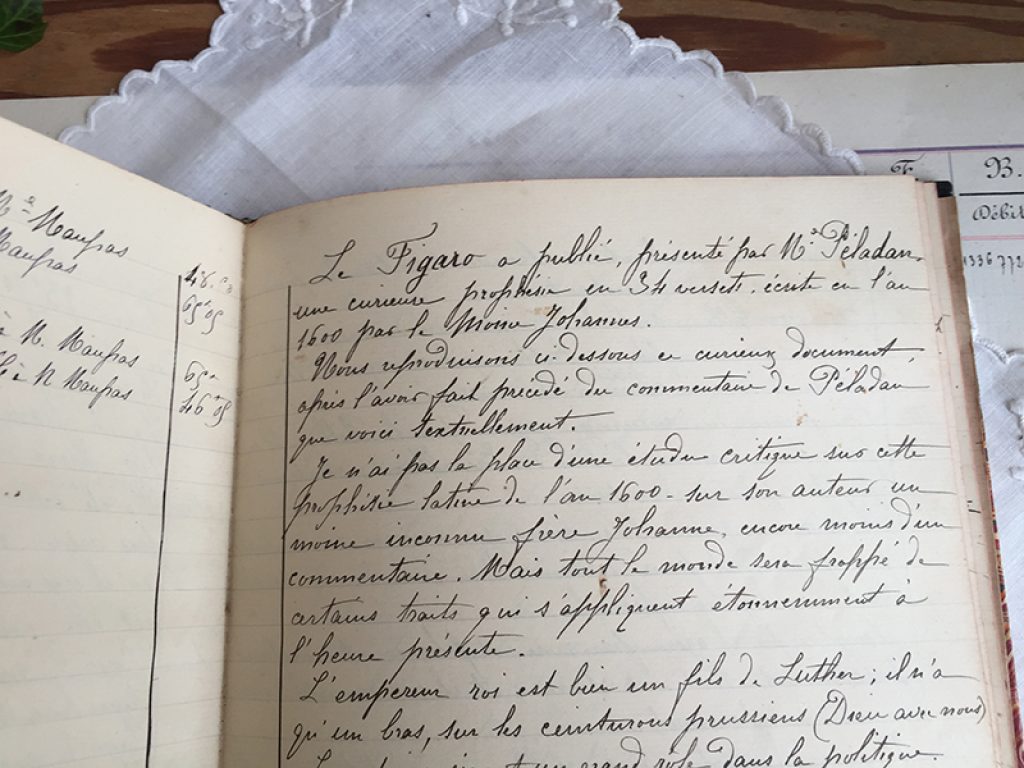 Mr Maufras
Maufras
à M. Maufras
à M Maufras
65.05
65
46.05
F.
B.
Débit
1336 772
Le Figaro a publié, présenté par Mr Péladan,
une curieuse prophésie en 34 versets, écrite en l'an
1600 par le Moine Johannes.
Nous reproduisons ci-dessous ce curieux document,
après l'avoir fait précédé du commentaire de Péladan
que voici textuellement.
Je n'ai pas la place d'une étude critique sur cette
prophésie latine de l'an 1600 - sur son auteur un
moine inconnu frère Johanne, encore moins d'un
commentaire. Mais tout le monde sera frappé de
certains traits qui s'appliquent étonnemment à
l'heure présente.
L'empereur roi est bien un fils de Luther ; il n'a
qu'un bras, sur les ceinturons prussiens (Dieu avec nous)
un grand rôle dans la politique.